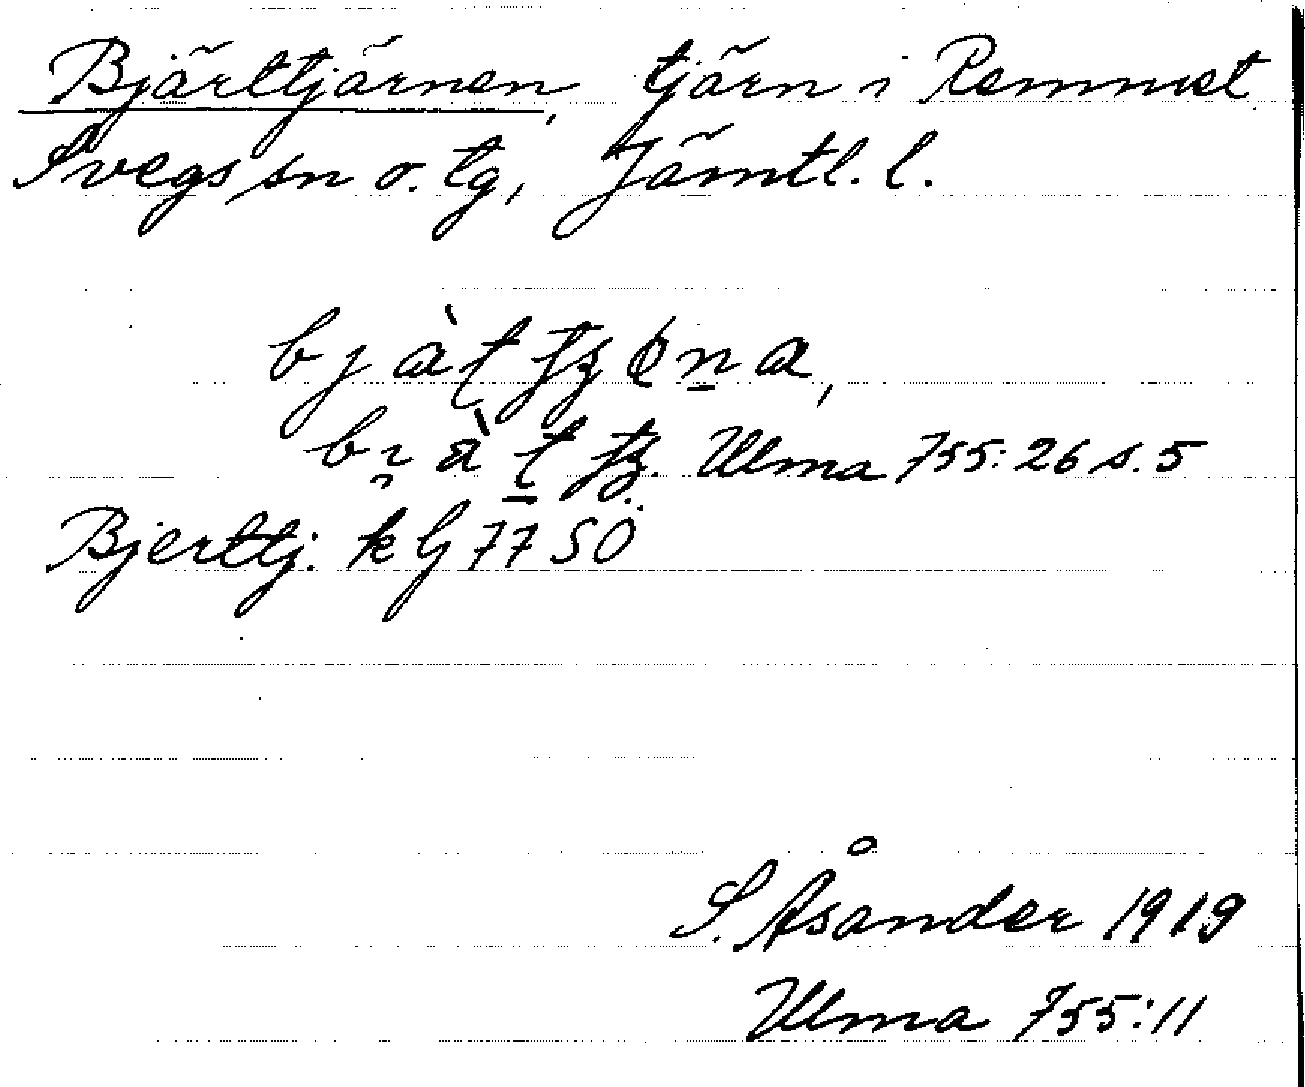 Bjärttjärnen, tjärn i Remmet
Svegs sn o. tg, Jämtl. l.
Ulma 755:26 s. 5
Bjerttj. k G 77 SÖ
S. Åsander 1919
Ulma 755:11